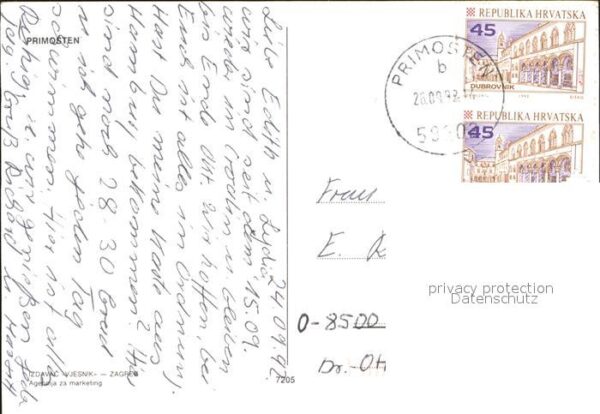 PRIMOŠTEN
24.09.92
Liebe Edith u. Lydia
wir sind seit dem 15.09.
wieder in Rodin u. bleiben
bis Ende Okt. Wir hoffen, bei
Euch ist alles in Ordnung.
Hast Du meine Karte aus
Hamburg bekommen? Hier
sind noch 28-30 Grad
u. ich gehe jeden Tag
schwimmen. Hier ist alles
u. wir genießen jede
Gruß Richard u.
IZDAVAČ »VJESNIK« — ZAGREB
Agencija za marketing
7205
REPUBLIKA HRVATSKA
45
DUBROVNIK
REPUBLIKA HRVATSKA
45
PRIMOŠTEN
b
28.09.92
Frau
E.
O-8500
Dr.-Ot
privacy protection
Datenschutz